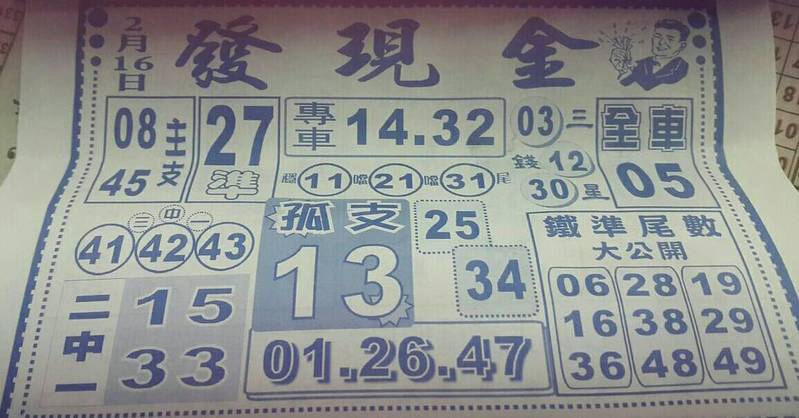 2月16日
發現金
08 主支
45
27
準
專車 14.32
03 三
錢 12
30 星
全車
05
11 噹 21 噹 31 尾
三中一
41 42 43
孤支
13
25
34
鐵準尾數
大公開
06 28 19
16 38 29
36 48 49
二中一
15
33
01.26.47